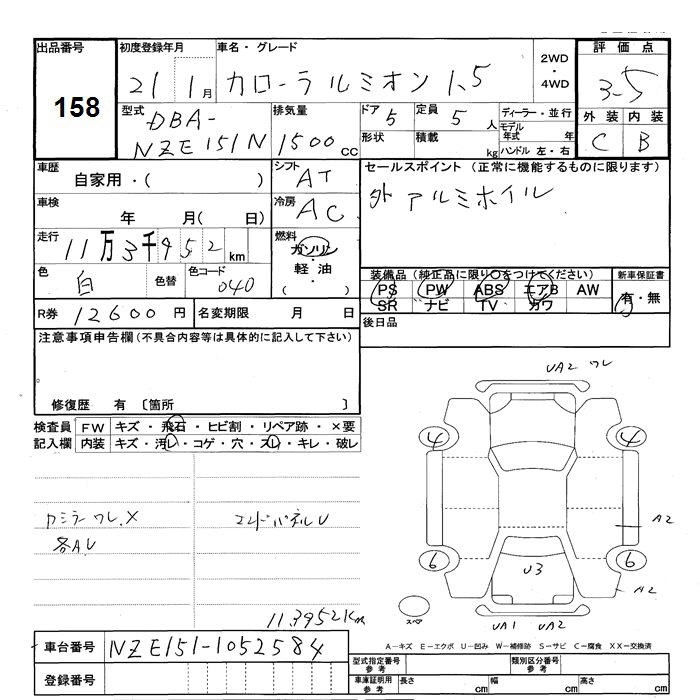 出品番号
158
初度登録年月
21 1月
車名・グレード
カローラルミオン 1.5
2WD
・
4WD
評価点
3-5
外装 内装
C B
型式
DBA-
NZE151N
排気量
1500cc
ドア 5
定員 5人
形状
積載 kg
ディーラー・並行
モデル年式 年
ハンドル 左・右
車歴
自家用・( )
シフト
AT
車検
年 月( 日)
冷房
AC
走行
11万3千952km
燃料
ガソリン
・
軽油
・
( )
色
白
色替
色コード
040
R券 12600円
名変期限 月 日
セールスポイント (正常に機能するものに限ります)
外 アルミホイル
装備品 (純正品に限り○をつけてください)
PS PW ABS エアB AW
SR ナビ TV カワ
新車保証書
有・無
後日品
注意事項申告欄(不具合内容等は具体的に記入して下さい)
修復歴 有 〔箇所 〕
検査員 FW キズ・飛石・ヒビ割・リペア跡・×要
記入欄 内装 キズ・汚レ・コゲ・穴・スレ・キレ・破レ
カミラー ワレ.X
各AU
エンドパネルU
113952Km
UA2 ワレ
4
4
A2
6
6
U3
A2
スペア
UA1 UA2
車台番号 NZE151-1052584
登録番号
A−キズ E−エクボ U−凹み W−補修跡 S−サビ C−腐食 XX−交換済
型式指定番号 参考
類別区分番号 参考
車庫証明用 参考
長さ cm
幅 cm
高さ cm